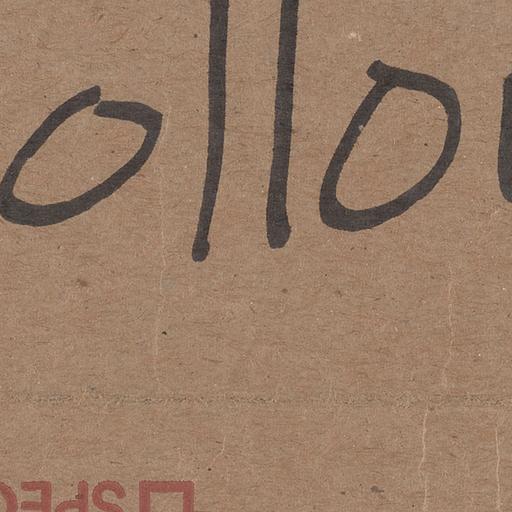 ollo
SPEC